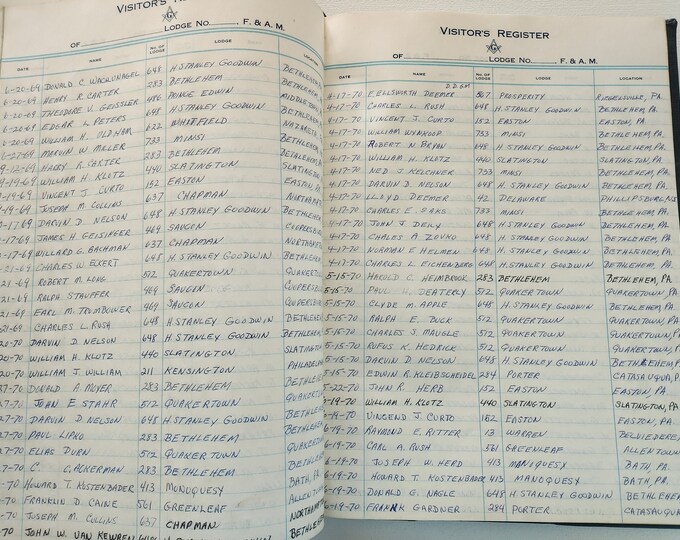 VISITOR'S REGISTER
OF LODGE NO. , F. & A. M.
DATE NAME NO. OF LODGE LODGE LOCATION
6-20-69 DONALD C. 648 H STANLEY GOODWIN BETHLEHEM
6-20-69 HENRY R. CARTER 283 BETHLEHEM BETHLEHEM
6-20-69 THEODORE V. GEISSLER 486 PRINCE EDWIN
6-20-69 EDGAR L. PETERS 648 H STANLEY GOODWIN BETHLEHEM
6-20-69 WILLIAM H. OLDHAM 622 WHITFIELD NAZARETH
6-27-69 MARVIN W. MILLER 733 MINSI BETHLEHEM
9-12-69 HARRY R. CARTER 283 BETHLEHEM BETHLEHEM
9-19-69 WILLIAM H. KLOTZ 440 SLATINGTON SLATINGTON
9-19-69 VINCENT J. CURTO 152 EASTON EASTON, PA
9-19-69 JOSEPH M. COLLINS 637 CHAPMAN
9-17-69 DARVIN D. NELSON 648 H. STANLEY GOODWIN BETHLEHEM
-17-69 JAMES H. GEISINGER 469 SAUCON COOPERSBURG
-17-69 WILLARD G. BACHMAN 637 CHAPMAN
-21-69 CHARLES W. ECKERT 648 H. STANLEY GOODWIN BETHLEHEM
-21-69 ROBERT M. LONG 512 QUAKERTOWN
21-69 RALPH STAUFFER 469 SAUCON
21-69 EARL M. TROMBOWER 469 SAUCON
21-69 CHARLES L. RUSH 648 H. STANLEY GOODWIN BETHLEHEM
20-70 DARVIN D. NELSON 648 H. STANLEY GOODWIN BETHLEHEM
20-70 WILLIAM H. KLOTZ 440 SLATINGTON SLATINGTON
20-70 WILLIAM J. WILLIAM 211 KENSINGTON
27-70 DONALD A MOYER 283 BETHLEHEM BETHLEHEM
27-70 JOHN E STAHR 512 QUAKERTOWN
27-70 DARVIN D NELSON 648 H. STANLEY GOODWIN BETHLEHEM
27-70 PAUL LIPKO 283 BETHLEHEM BETHLEHEM
-70 ELIAS DURN 512 QUAKERTOWN
-70 C. C. ACKERMAN 283 BETHLEHEM
-70 HOWARD T. KOSTENBADER 413 MONOQUESY BATH, PA
-70 FRANKLIN D. CAINE 561 GREENLEAF
-70 JOSEPH M. COLLINS 637 CHAPMAN
70 JOHN W. VAN KEWREN
VISITOR'S REGISTER
OF LODGE NO. , F. & A. M.
DATE NAME NO. OF LODGE LODGE LOCATION
D.D.G.M
4-17-70 E. ELLSWORTH DEEMER 567 PROSPERITY RIEGELSVILLE, PA.
4-17-70 CHARLES L. RUSH 648 H. STANLEY GOODWIN BETHLEHEM, PA.
4-17-70 VINCENT J. CURTO 152 EASTON EASTON, PA.
4-17-70 WILLIAM WYNKOOP 733 MINSI BETHLEHEM, PA.
4-17-70 ROBERT N. BRYON 648 H. STANLEY GOODWIN BETHLEHEM, PA.
4-17-70 WILLIAM H. KLOTZ 440 SLATINGTON SLATINGTON, PA.
4-17-70 NED J. KELCHNER 733 MINSI BETHLEHEM, PA.
4-17-70 DARVIN D. NELSON 648 H. STANLEY GOODWIN BETHLEHEM, PA.
4-17-70 LLOYD DEEMER 42 DELAWARE PHILLIPSBURG, NJ
4-17-70 CHARLES E. 733 MINSI BETHLEHEM, PA.
4-17-70 JOHN J DEILY 648 H. STANLEY GOODWIN BETHLEHEM, PA.
4-17-70 CHALES A ZOUKO 648 H. STANLEY GOODWIN BETHLEHEM, PA.
4-17-70 NORMAN E. HELMEN 648 H. STANLEY GOODWIN BETHLEHEM, PA.
4-17-70 CHARLES L. EICHENBERG 648 H. STANLEY GOODWIN BETHLEHEM, PA.
5-15-70 HAROLD C. HEIMBROOK 283 BETHLEHEM BETHLEHEM, PA.
5-15-70 PAUL H. DEATERLY 512 QUAKERTOWN QUAKERTOWN, PA.
5-15-70 CLYDE M. APPLE 648 H. STANLEY GOODWIN BETHLEHEM, PA.
5-15-70 RALPH E. BUCK 512 QUAKERTOWN QUAKERTOWN, PA.
5-15-70 CHARLES S. MAUGLE 512 QUAKERTOWN QUAKERTOWN, PA.
5-15-70 RUFUS K. HEDRICK 512 QUAKERTOWN QUAKERTOWN, PA.
5-15-70 DARVIN D. NELSON 648 H. STANLEY GOODWIN BETHLEHEM, PA.
5-15-70 EDWIN R. KLEIBSCHEIDEL 284 PORTER CATASAUQUA, PA.
5-22-70 JOHN R. HERB 152 EASTON EASTON, PA.
6-19-70 WILLIAM H. KLOTZ 440 SLATINGTON SLATINGTON, PA.
6-19-70 VINCEND J. CURTO 152 EASTON EASTON, PA.
6-19-70 RAYMOND E. RITTER 13 WARREN BELVIDERE
6-19-70 CARL A. RUSH 561 GREENLEAF ALLENTOWN
6-19-70 JOSEPH W. HERD 413 MANOQUESY BATH, PA.
6-19-70 HOWARD T. KOSTENBADER 413 MANOQUESY BATH, PA.
6-19-70 DONALD G. NAGLE 648 H. STANLEY GOODWIN BETHLEHEM
6-19-70 FRANK GARDNER 284 PORTER CATASAUQUA